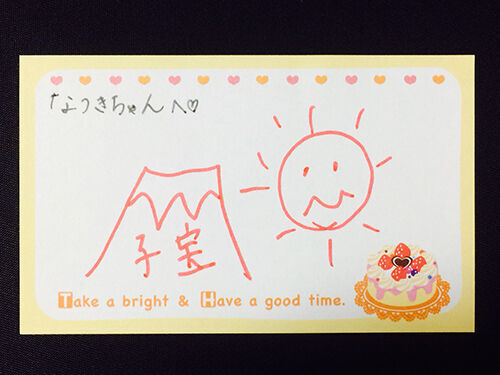 なつきちゃんへ♡
子宝
Take a bright & Have a good time.